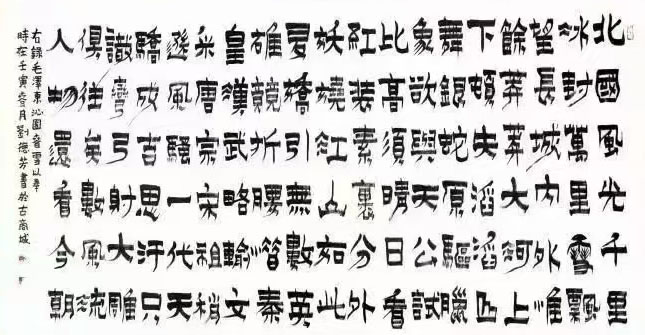 北國風光千里
冰封萬里雪飄
望長城內外惟
餘莽莽大河上
下頓失滔滔山
舞銀蛇原驅臘
象欲與天公試
比高須晴日看
紅裝素裹分外
妖嬈江山如此
多嬌引無數英
雄競折腰惜秦
皇漢武略輸文
采唐宗宋祖稍
遜風騷一代天
驕成吉思汗只
識彎弓射大雕
俱往矣數風流
人物還看今朝
右錄毛澤東沁園春雪以奉
時在壬寅春月劉德芳書於古商城